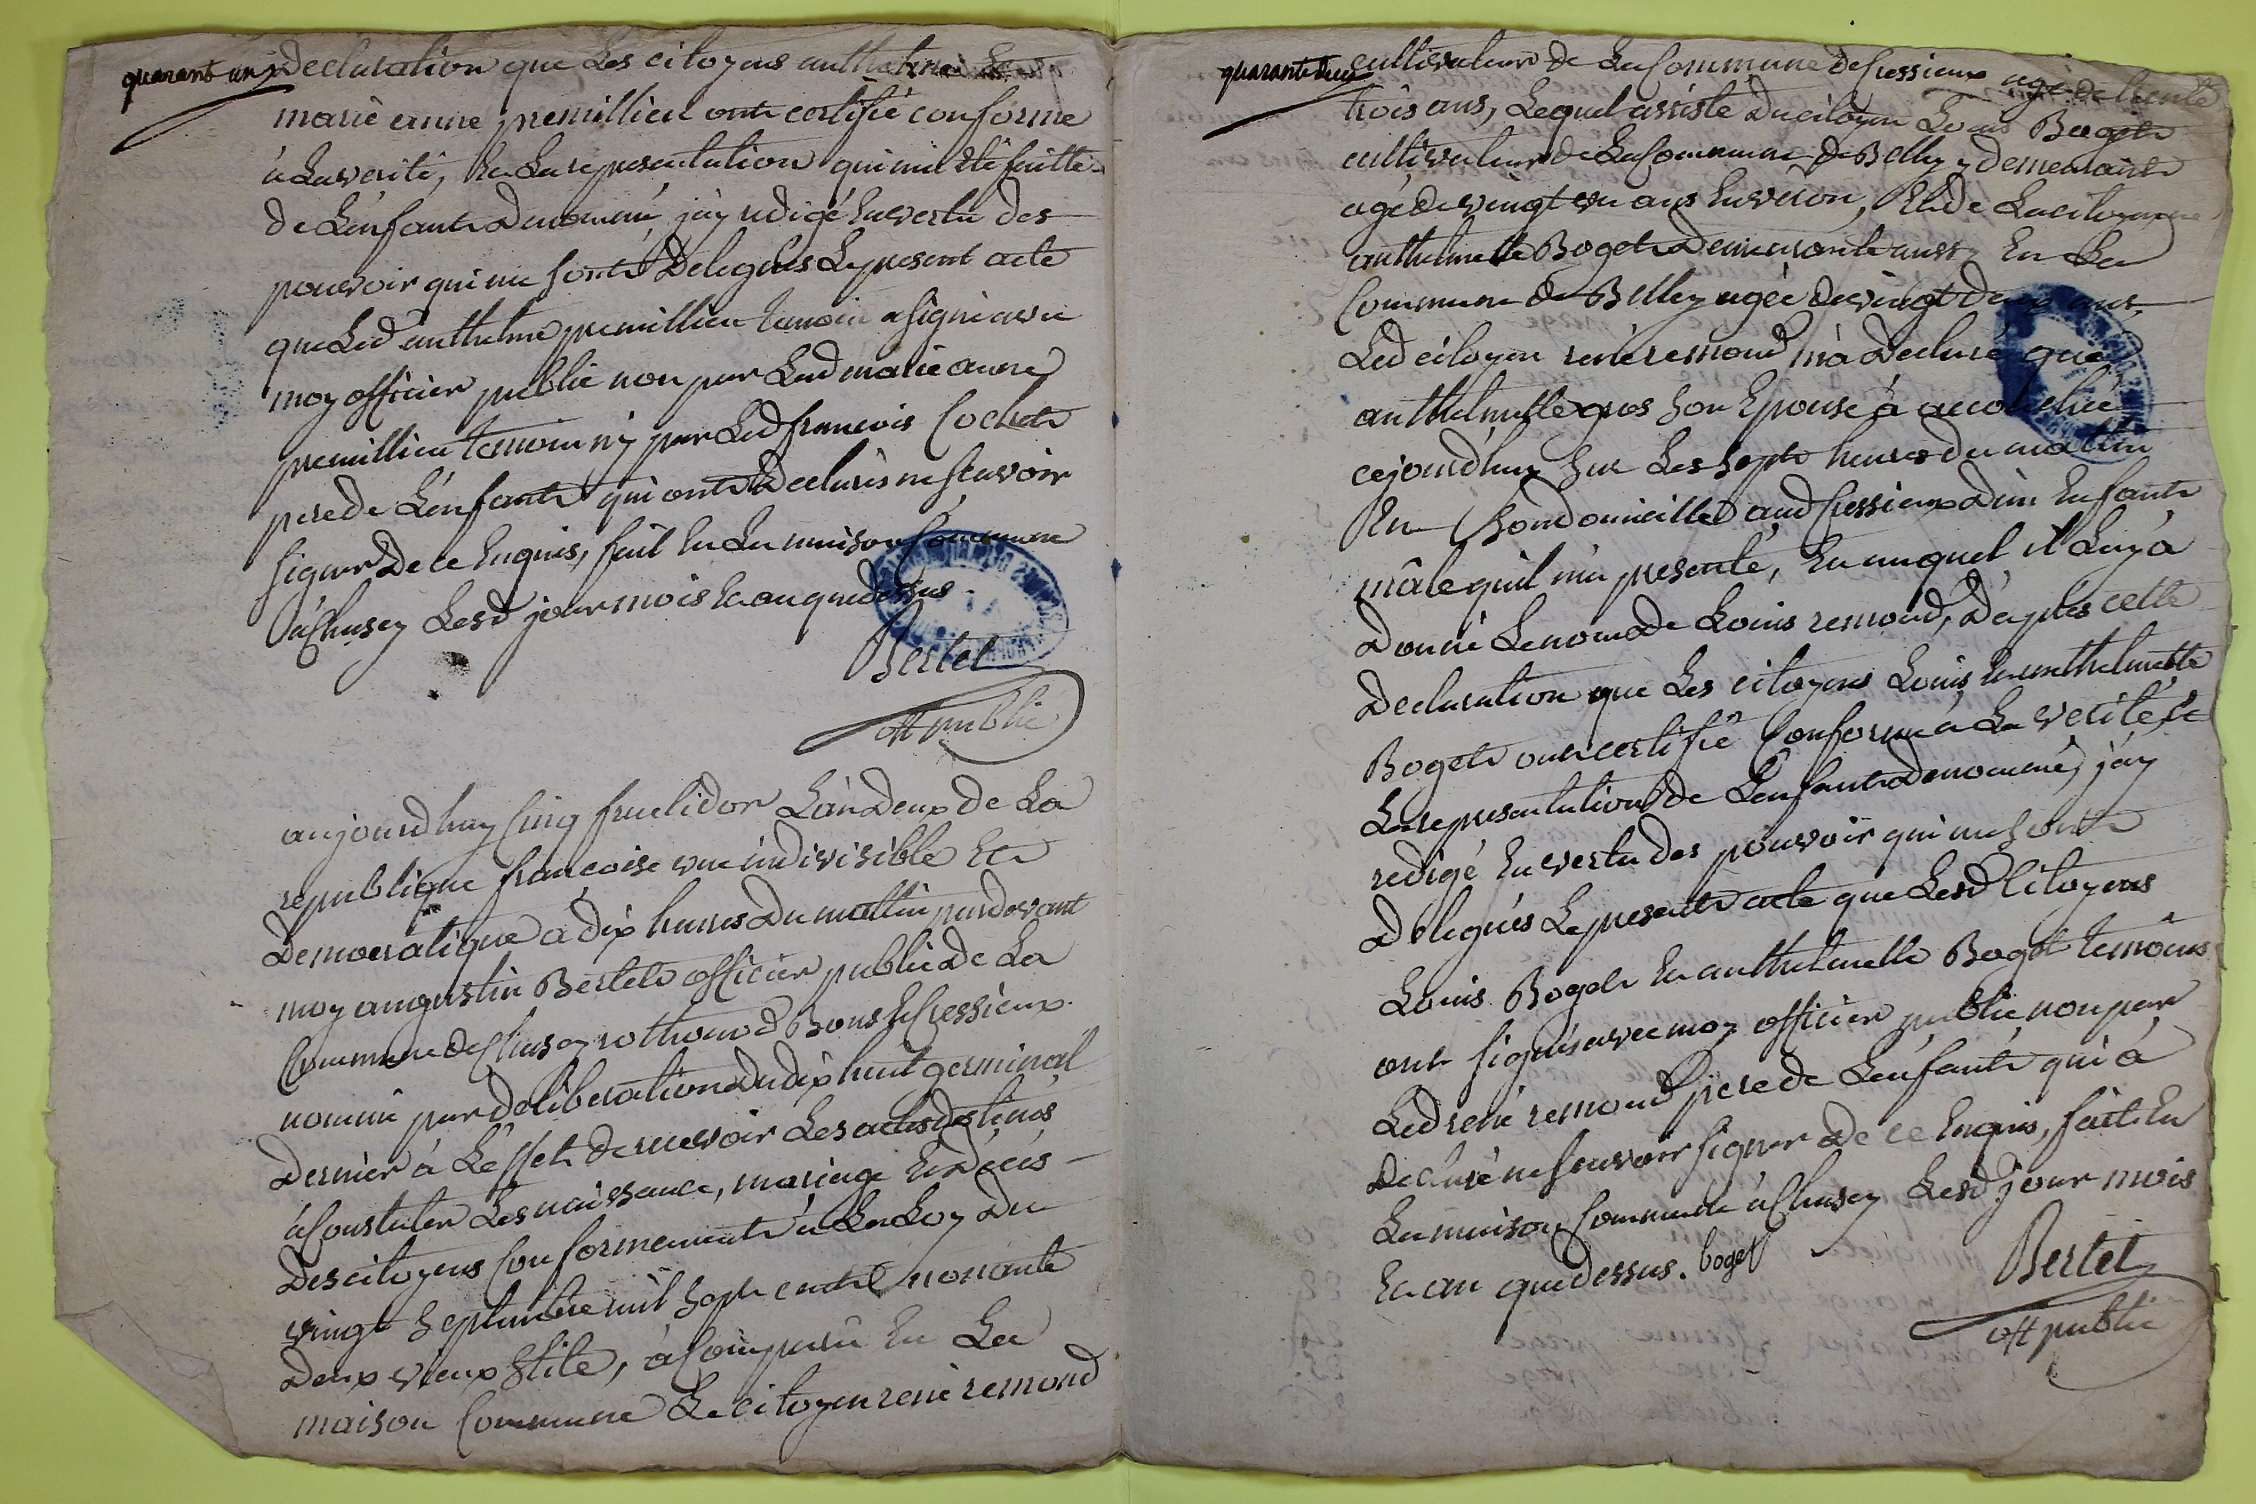 quarant un
declaration que Les citoyens anthelme Et
marie anne premillieu ont certifié conforme
à La verité, Et La representation qui m'a Eté faitte
de L'enfant denommé, j'ay redigé En vertu des
pouvoir qui me sont delegués Le present acte
que Led anthelme premillieu temoin a signé avec
moy officier public non par Lad marie anne
premillieu temoin ny par Led francois Cochet
pere de L'enfant qui ont declarés ne scavoir
signer de ce Enquis, fait En La maison Commune
à Chasey Lesd jour mois Et an que dessus.
Bertet
off public
aujourd huy Cinq fructidor L'an deux de La
republique francoise une indivisible Et
Democratique a dix heures du mattin par devant
moy augustin Bertet officier public de La
Commune de Chasey rothonod Bons Et Cressieux
nommé par deliberation du dix huit germinal
dernier à L'effet de recevoir Les actes destinés
à Constater Les naissance, mariage Et décés
des citoyens Conformement à La Loy du
vingt septembre mil sept cent nonante
deux vieux stile, à Comparu En La
maison Commune Le citoyen rené remond
quarante deux
cultivateur de La Commune de Cressieux agé de trente
trois ans, Lequel assisté du citoyen Louis Boget
cultivateur de La Commune de Belley y demeurant
agé de vingt un ans Environ, Et de La citoyenne
anthelmette Boget demeurante aussy En La
Commune de Belley agée de vingt deux ans,
Led citoyen rené remond m'à declaré que
anthelmette gros son Epouse à accouchée
cejourd'huy sur Les sept heures du mattin
En son domicille aud Cressieux d'un Enfant
mâle qu'il m'a presenté, Et auquel il Luy à
donné Le nom de Louis remond, d'après cette
declaration que Les citoyens Louis Et anthelmette
Boget ont certifié Conforme à La verité, Et
La representation de L'enfant denommé, j'ay
redigé En vertu des pouvoir qui me sont
delegués Le present acte que Lesd Citoyens
Louis Boget Et anthelmette Boget temoins
ont signés avec moy officier public non par
Led rené remond pere de L'enfant qui à
declaré ne scavoir signer de ce Enquis, fait En
La maison Commune à Chasey Lesd jour mois
Et an que dessus. boget
Bertet
off public